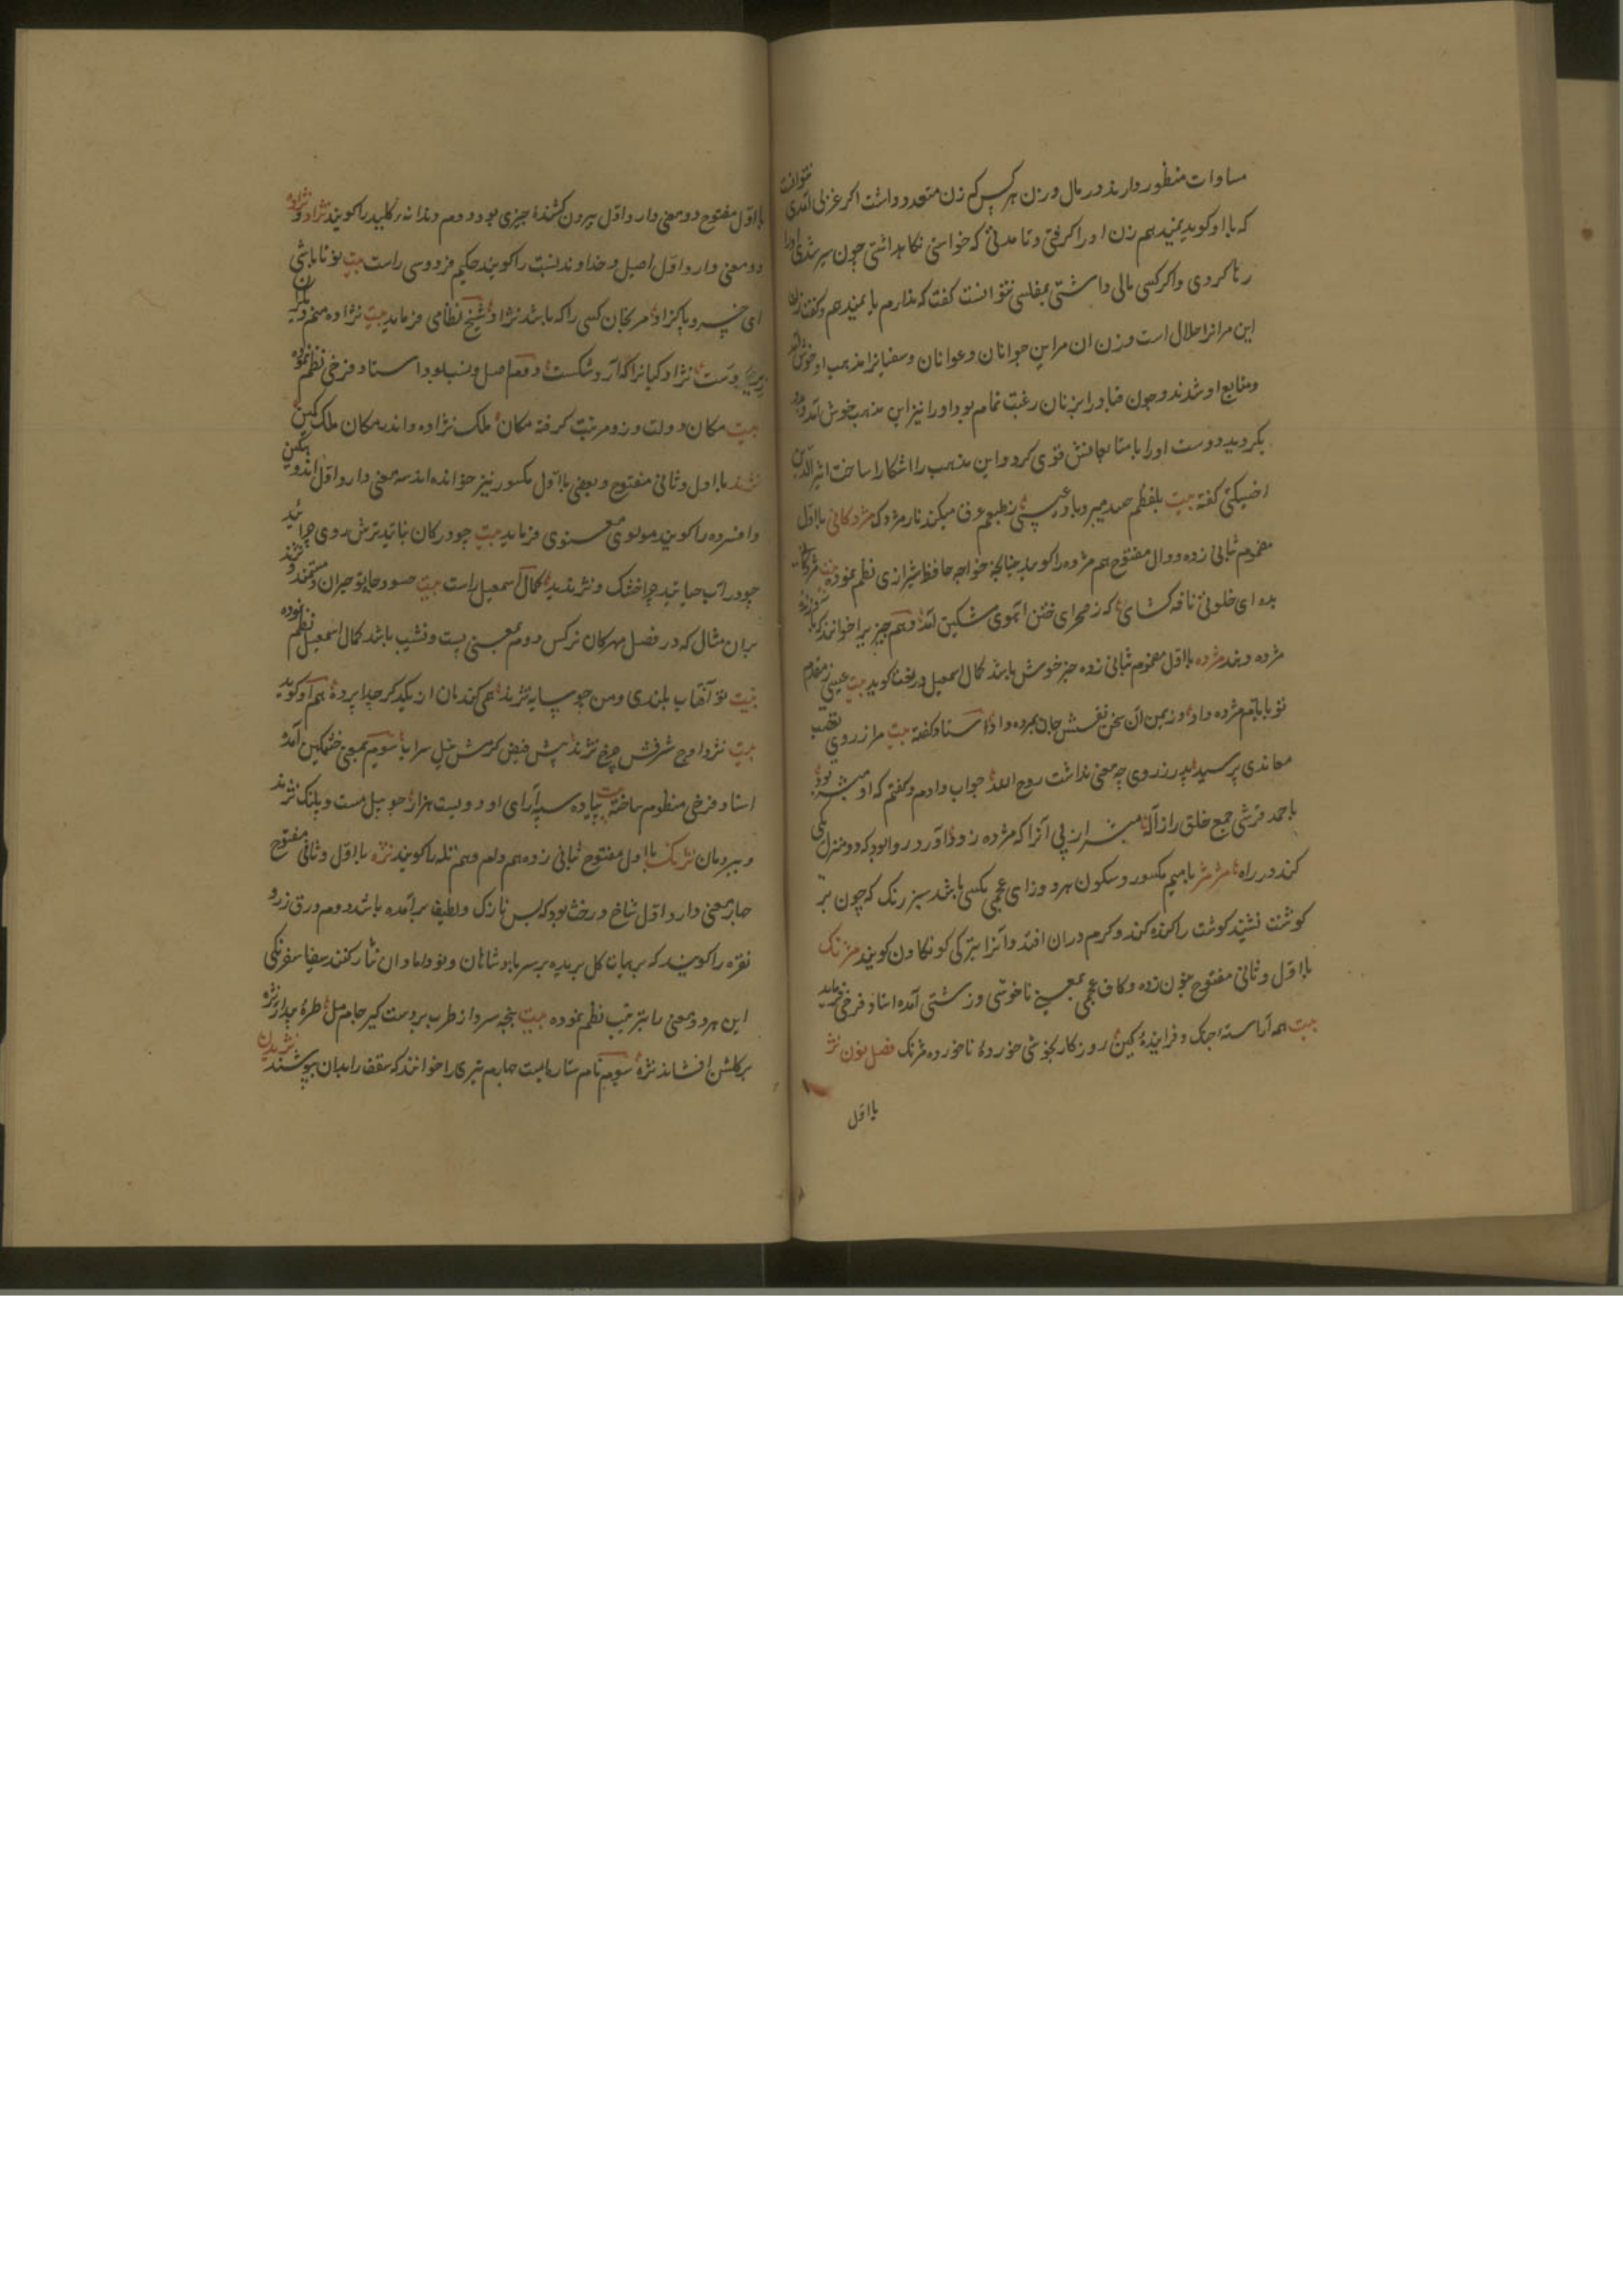 مساوات منظور دارند در مال و زن هر کس که زن متعدد داشت اگر عزبی آمدی نتوانست
که با او گوید نمیدهم زن او را گرفتی و تا مدتی که خواستی نگاهداشتی چون سیر شدی او را
رها کردی و اگر کسی مالی داشتی بمفلسی نتوانست گفت که ندارم یا نمیدهم و گفتند زن
این مر انرا حلال است و زن ان مر این جوانان و عوانان و سفیانرا مذهب او خوش آمد
و متابع او شدند و چون قباد را بزنان رغبت تمام بود او را نیز این مذهب خوش آمد و بدو
بگروید دوست او را بامتابعانش قوی کرد و این مذهب را اشکارا ساخت اثیرالدین
اخسیکتی گفته بیت بلفظم صد میبرد باد عیسی ز طبعم عرف میکند نار مزدک مژدگانی با اول
مضموم ثبانی زده و دال مفتوح هم مژده را گویند چنانچه خواجه حافظ شیرازی نظم نموده بیت مژدگانی
بده ای خلوتی نافه گشای که ز صحرای ختن آهوی مشکین آمد و هم چیزیرا خوانند که با
مژده دهند مژده با اول مضموم ثبانی زده خبر خوش باشد کمال اسمعیل در نعت گوید بیت عیسی ز مقدم
تو بابام مژده داد وز یمن آن سخن نفسش جان بمرده داد استاد گفته بیت مرا ز روی تعصب
معاندی پرسید پدر ز روی چه معنی نداشت روح الله جواب دادم و گفتم که او مبشر بود
با حمد قرشی جمع خلق را ز آله مبشر از پی آنرا که مژده زود آورد روا بود که دو منزل یکی
کند در راه مژمژ با میم مکسور و سکون هر دو زای عجمی مکسی باشد سبز رنگ که چون بر
گوشت نشیند گوشت را گنده کند و کرم دران افتد و آنرا بترکی کوکاون گویند مژنگ
با اول و ثانی مفتوح بنون زده و کاف عجمی بمعنی ناخوشی و زشتی آمده استاد فرخی فرماید
بیت همه آراسته جنگ و فزاینده کین روزگاری بخوشی خورده ناخورده مژنگ فصل نون نژ
با اول
با اول مفتوح دو معنی دارد اول بیرون کشنده چیزی بود دوم دندانه کلید را گویند نژاد و نژاده
دو معنی دارد اول اصیل و خداوند نسبت را گویند حکیم فردوسی راست بیت بدو تا باشی
ای خسرو پاکزاد مرنجان کسی را که باشد نژاد شیخ نظامی فرماید بیت نژاده منم دیگران
زیردست نژاد کیانرا که آرد شکست دوم اصل و نسب بود استاد فرخی نظم نموده
بیت مکان دولت وزو مرتبت گرفته مکان ملک نژاده و اندر مکان ملک مکین
نژند با اول و ثانی مفتوح و بعضی با اول مکسور نیز خوانده اند سه معنی دارد اول اندوهگین
و افسرده را گویند مولوی معنوی فرماید بیت چو در کان نباتید ترش روی چرائید
چو در آب حیاتید چرا خشک و نژندید کمال اسمعیل راست بیت حسود جاه تو حیران و مستمند و نژند
بران مثال که در فصل مهرگان نرگس دوم بمعنی پست و نشیب باشد کمال اسمعیل نظم نموده
بیت تو آفتاب بلندی و من چو سایه نژند همی کندمان از یکدگر جدا پرده هم او گوید
بیت نزد اوج شرفش چرخ نژند پیش فیض کرمش نیل سراب سوم بمعنی خشمگین آمده
استاد فرخی منظوم ساخته بیت پیاده سپه آرای او دویست هزار چو پیل مست و پلنگ نژند
و ببر دمان نژنگ با اول مفتوح ثبانی زده هم دام و هم تله را گویند نژه با اول و ثانی مفتوح
چار معنی دارد اول شاخ درخت بود که بس نازک و لطیف برآمده باشد دوم ورق زر و
نقره را گویند که بر بسان گل بریده بر سر پادشاهان و نوداماد ان نثار کنند سیفی اسفرنگی
این هر دو معنی را بترتیب نظم نموده بیت پنجه سرو از طرب بردست گیر جام مل طره بید از نژه
بر گلشن افشاند نژه سوم نام ستاره ایست چهارم تیری را خوانند که سقف را بدان بپوشند نژیدن